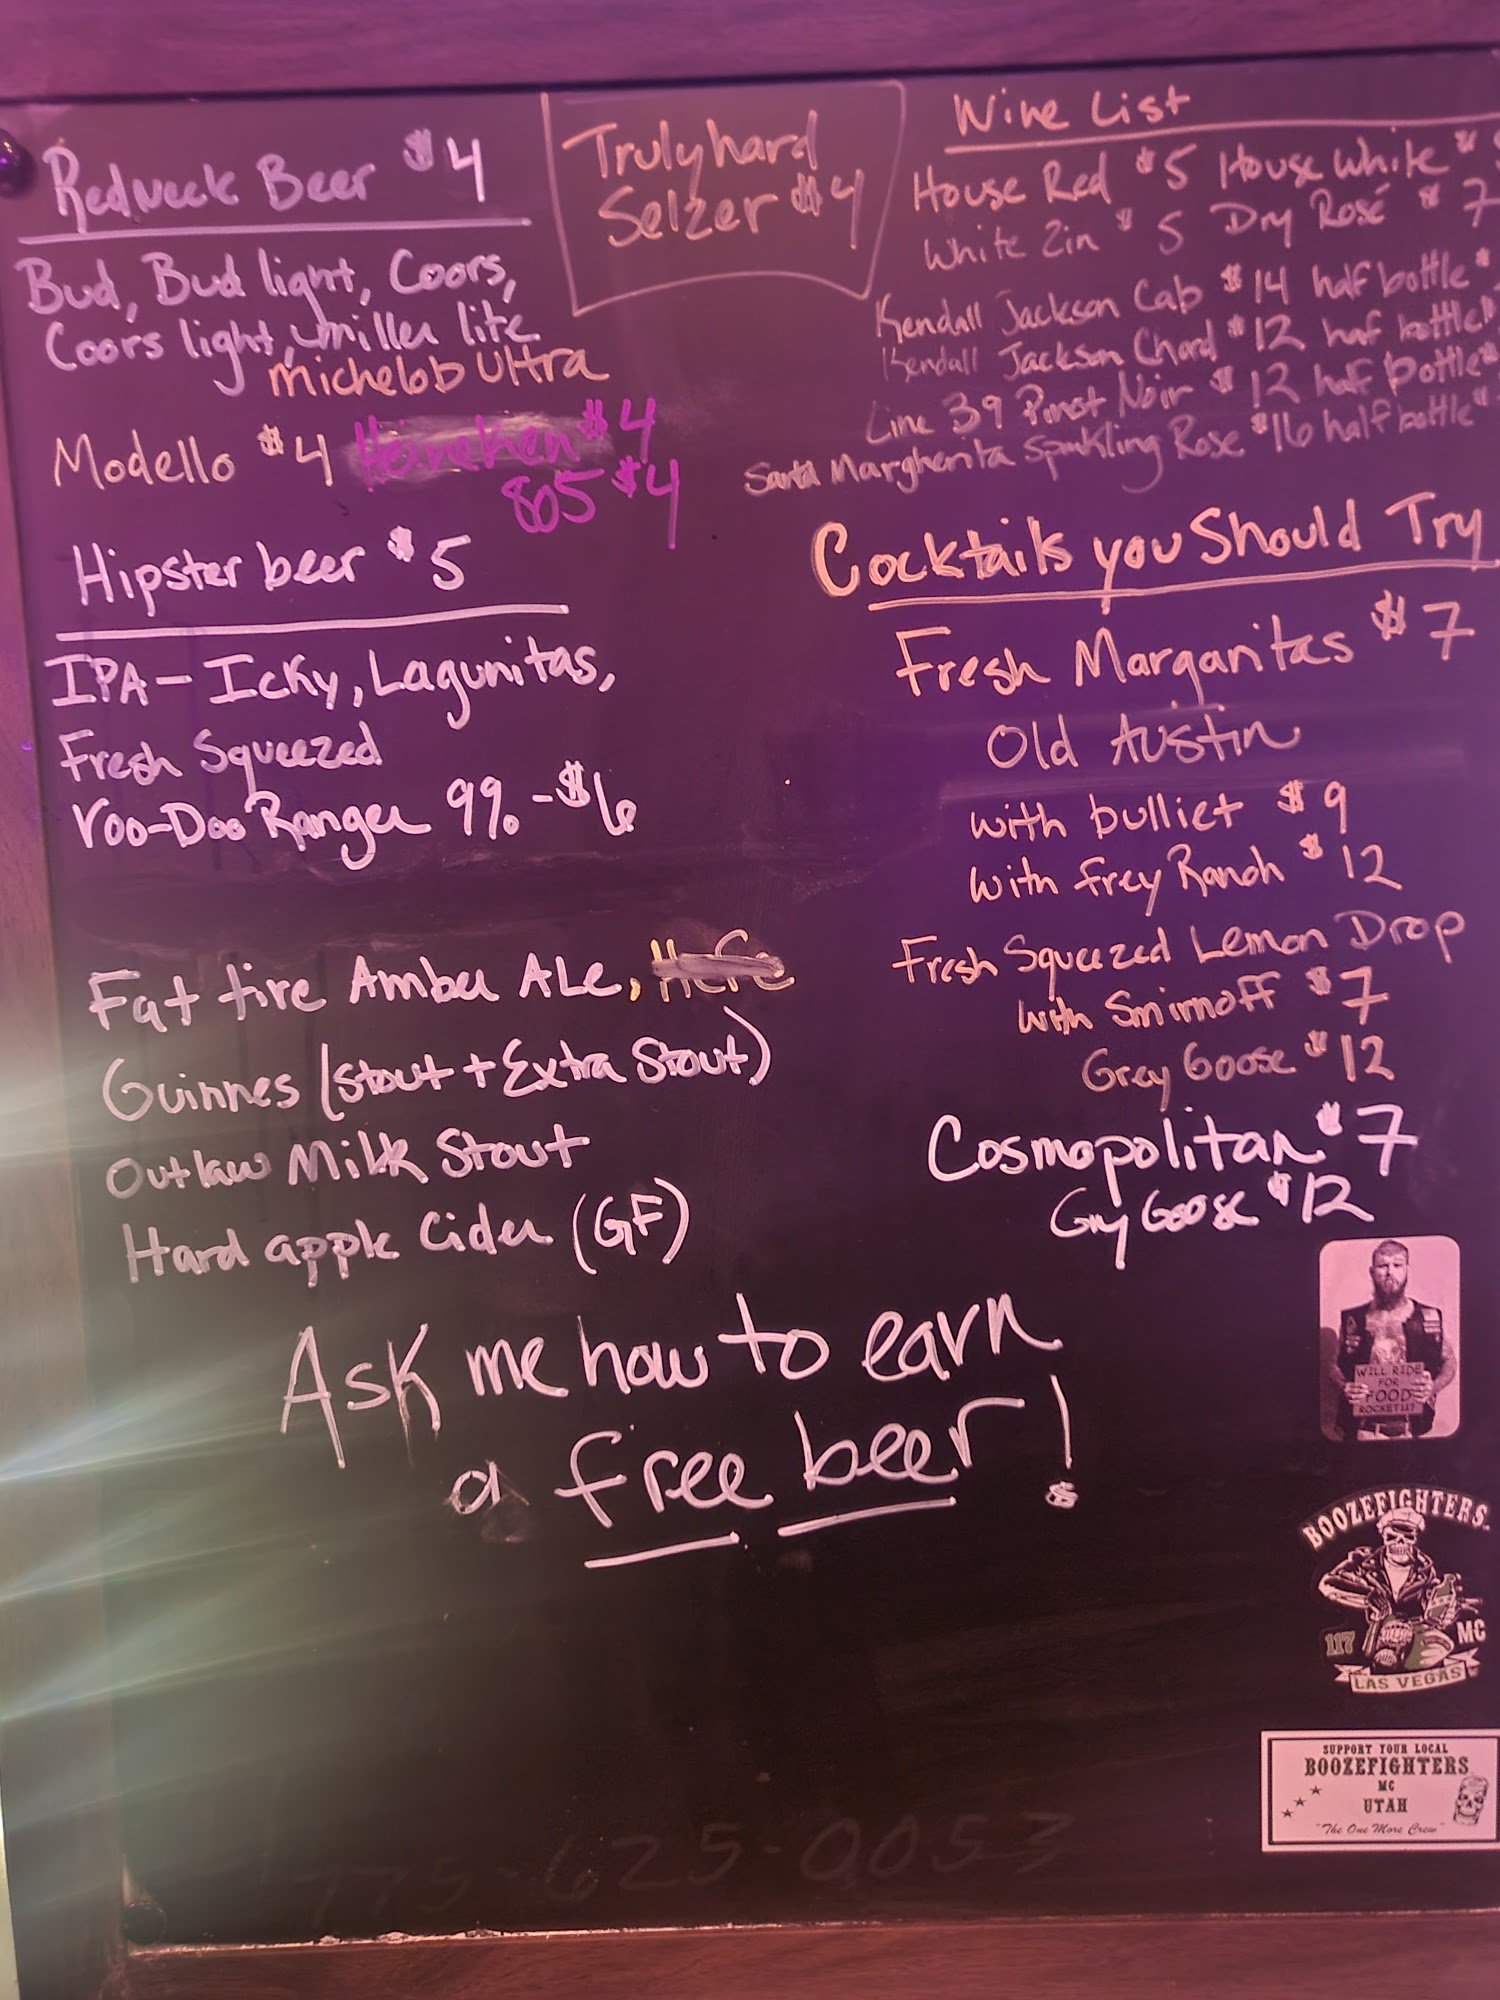 Redneck Beer $4
Bud, Bud light, Coors,
Coors light, miller lite
Michelob Ultra
Modello $4 Heineken $4
805 $4
Hipster beer $5
IPA - Icky, Lagunitas,
Fresh Squeezed
Voo-Doo Ranger 9% - $6
Fat tire Amber ALe, Hefe
Guinnes (Stout + Extra Stout)
Outlaw Milk Stout
Hard apple Cider (GF)
Truly hard
Selzer $4
Wine List
House Red $5 House White $
White Zin $5 Dry Rosé $7
Kendall Jackson Cab $14 half bottle"
Kendall Jackson Chard $12 half bottle"
Line 39 Pinot Noir $12 half bottle"
Santa Margherita Sparkling Rose $16 half bottle"
Cocktails you Should Try
Fresh Margaritas $7
Old Austin
with bulliet $9
with frey Ranch $12
Fresh Squeezed Lemon Drop
with Smirnoff $7
Grey Goose $12
Cosmopolitan $7
Grey Goose $12
Ask me how to earn
a free beer!
WILL RIDE
FOR
FOOD
BOOZEFIGHTERS
117 MC
LAS VEGAS
SUPPORT YOUR LOCAL
BOOZEFIGHTERS
MC
UTAH
"The One More Crew"
775-625-0053